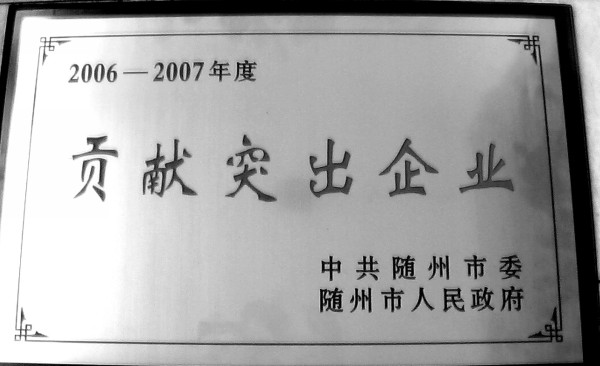 2006—2007年度
贡献突出企业
中共随州市委
随州市人民政府